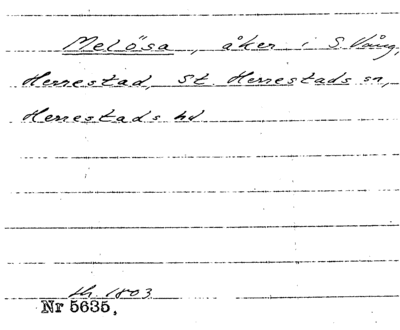 Melösa, åker i S. Vång,
Herrestad, St Herrestads sn,
Herrestads hd
lh 1803
Nr 5635,